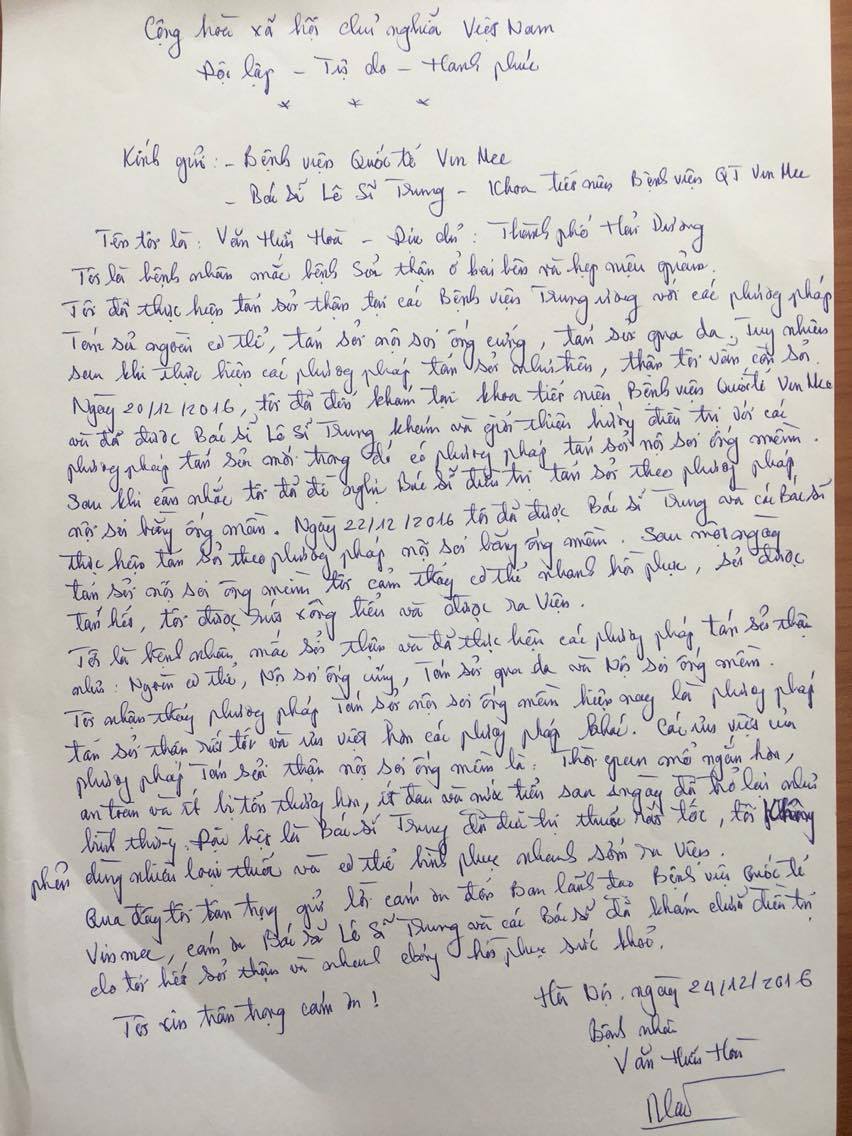 Cộng hoà xã hội chủ nghĩa Việt Nam
Độc lập - Tự do - Hạnh phúc
* * *
Kính gửi: - Bệnh viện Quốc tế Vin Mec
- Bác sĩ Lê Sĩ Trung - Khoa tiết niệu Bệnh viện QT Vin Mec
Tên tôi là: Văn Hoà - Địa chỉ: Thành phố Hải Dương
Tôi là bệnh nhân mắc bệnh Sỏi thận ở hai bên và hẹp niệu quản.
Tôi đã thực hiện tán sỏi thận tại các Bệnh viện Trung ương với các phương pháp
Tán sỏi ngoài cơ thể, tán sỏi nội soi ống cứng, tán sỏi qua da, Tuy nhiên
sau khi thực hiện các phương pháp tán sỏi như trên, thận tôi vẫn còn sỏi.
Ngày 20/12/2016, tôi đã đến khám tại khoa tiết niệu Bệnh viện Quốc tế Vin Mec
và đã được Bác sĩ Lê Sĩ Trung khám và giới thiệu hướng điều trị với các
phương pháp tán sỏi mới trong đó có phương pháp tán sỏi nội soi ống mềm.
Sau khi cân nhắc tôi đã đề nghị Bác sĩ điều trị tán sỏi theo phương pháp
nội soi bằng ống mềm. Ngày 22/12/2016 tôi đã được Bác sĩ Trung và các Bác sĩ
thực hiện tán sỏi theo phương pháp nội soi bằng ống mềm. Sau một ngày
tán sỏi nội soi ống mềm tôi cảm thấy cơ thể nhanh hồi phục, sỏi được
tán hết, tôi được rút xông tiểu và được ra Viện.
Tôi là bệnh nhân mắc sỏi thận và đã thực hiện các phương pháp tán sỏi thận
như: Ngoài cơ thể, Nội soi ống cứng, Tán sỏi qua da và Nội soi ống mềm.
Tôi nhận thấy phương pháp Tán sỏi nội soi ống mềm hiện nay là phương pháp
tán sỏi thận rất tốt và ưu việt hơn các phương pháp khác. Các ưu việt của
phương pháp Tán sỏi thận nội soi ống mềm là: Thời gian mổ ngắn hơn,
an toàn và ít bị tổn thương hơn, ít đau và nước tiểu sau 1 ngày đã trở lại như
bình thường. Đặc biệt là Bác sĩ Trung đã điều trị thuốc rất tốt, tôi không
phải dùng nhiều loại thuốc và cơ thể bình phục nhanh sớm ra Viện.
Qua đây tôi trân trọng gửi lời cảm ơn đến Ban lãnh đạo Bệnh viện Quốc tế
Vinmec, cảm ơn Bác sĩ Lê Sĩ Trung và các Bác sĩ đã khám chữa điều trị
cho tôi hết sỏi thận và nhanh chóng hồi phục sức khoẻ.
Tôi xin trân trọng cảm ơn!
Hà Nội, ngày 24/12/2016
Bệnh nhân
Văn Hoà